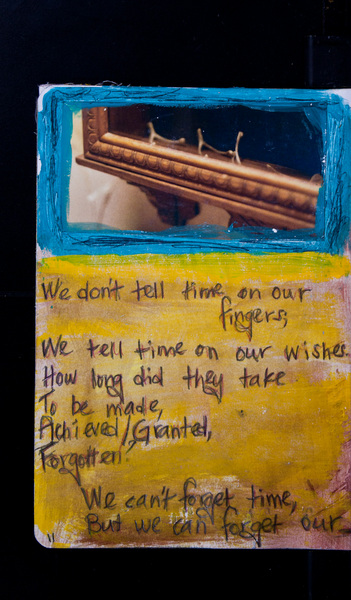 We don't tell time on our
fingers;
We tell time on our wishes.
How long did they take
To be made,
Achieved/Granted,
Forgotten.
We can't forget time,
But we can forget our